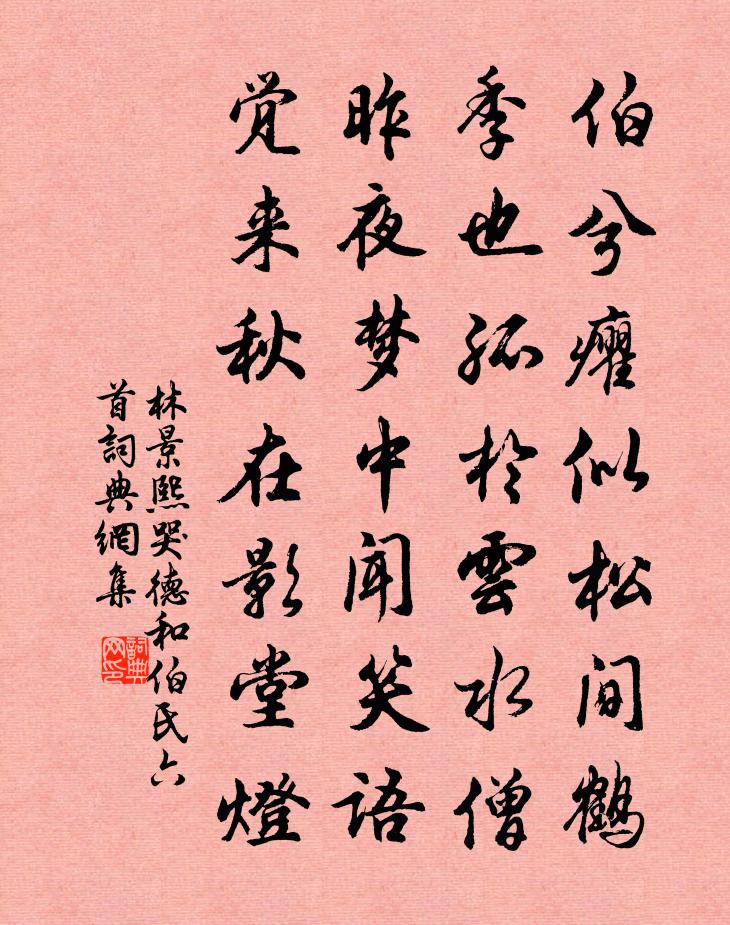 伯兮癯似松间鹤
季也孤於雲水僧
昨夜梦中闻笑语
觉来秋在影堂燈
林景熙哭德和伯氏六
首詞典網集
詞典
网印